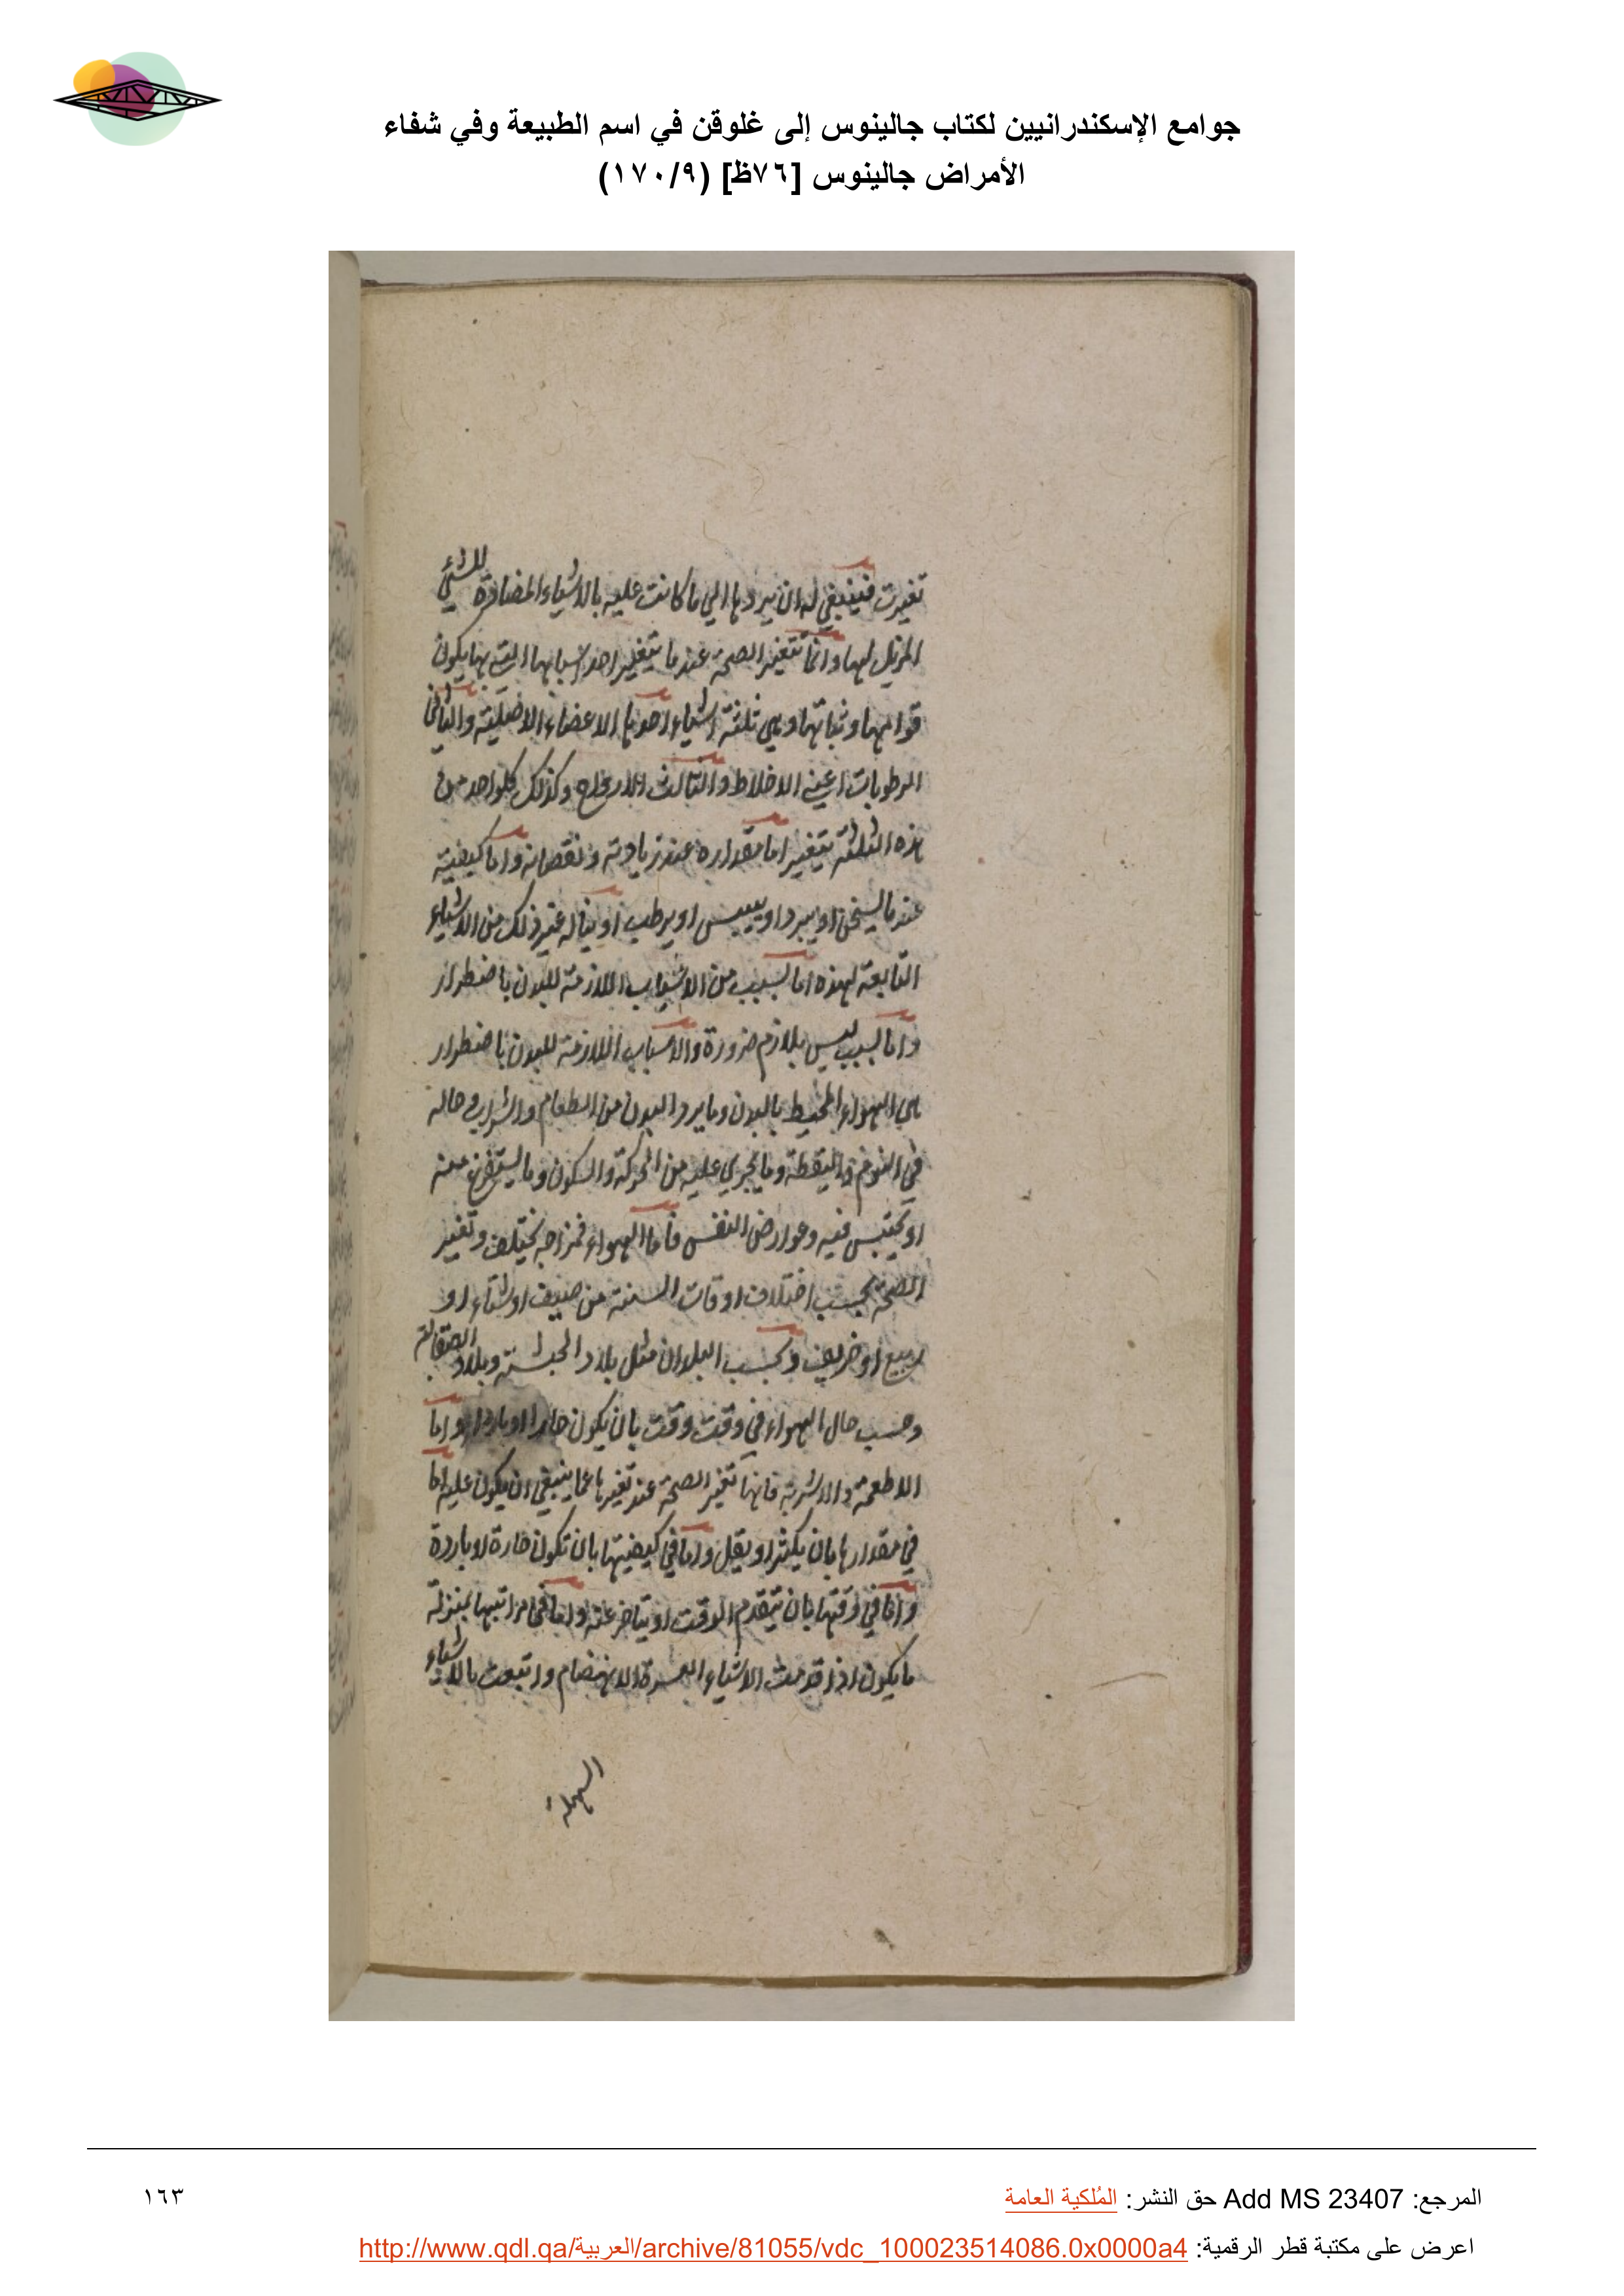 جوامع الإسكندرانيين لكتاب جالينوس إلى غلوقن في اسم الطبيعة وفي شفاء
الأمراض جالينوس [٧٦ظ] (١٧٠/٩)
تغيرت فينبغي له ان يردها الي ما كانت عليه بالاشياء المضادة للشئ
المزيل لها وانما تتغير الصحة عندما يتغير احد اسبابها التي بها يكون
قوامها وثباتها وهي ثلثة اشياء احدها الاعضاء الاصلية والثاني
الرطوبات اعني الاخلاط والثالث الارواح وكذلك كلواحد من
هذه الثلثة يتغير اما مقداره عند زيادته ونقصانه واما كيفيته
عندما يسخن او يبرد او ييبس او يرطب او يناله غير ذلك من الاشياء
التابعة لهذه اما بسبب من الاسباب اللازمة للبدن باضطرار
واما بسبب ليس بلازم ضرورة والاسباب اللازمة للبدن باضطرار
هي الهواء المحيط بالبدن وما يرد البدن من الطعام والشراب وحاله
في النوم واليقظة وما يجري عليه من الحركة والسكون وما يستفرغ منه
او يحتبس فيه وعوارض النفس فاما الهواء فمزاجه يختلف وتغير
الصحة بحسب اختلاف اوقات السنة من صيف او شتاء او
ربيع او خريف وبحسب البلدان مثل بلاد الحبشة وبلاد الصقالبة
وحسب حال الهواء في وقت وقت بان يكون حارا او باردا واما
الاطعمة والاشربة فانها تغير الصحة عند تغيرها عما ينبغي ان يكون عليه اما
في مقدارها بان يكثر او يقل واما في كيفيتها بان تكون حارة او باردة
واما في وقتها بان يتقدم الوقت او يتاخر عنه واما في مراتبها بمنزلة
ما يكون اذا قدمت الاشياء العسرة الانهضام واتبعت بالاشياء
السهلة
المرجع: Add MS 23407 حق النشر: المُلكية العامة
١٦٣
اعرض على مكتبة قطر الرقمية: http://www.qdl.qa/العربية/archive/81055/vdc_100023514086.0x0000a4